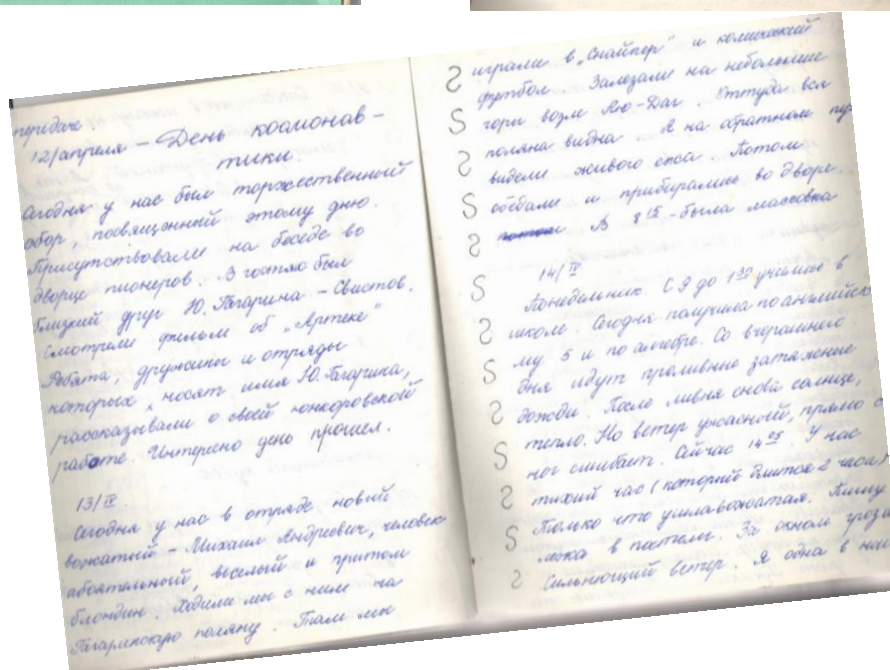 передач.
12/апреля – День космонав-
тики
Сегодня у нас был торжественный
сбор, посвященный этому дню.
Присутствовали на беседе во
дворце пионеров. В гостях был
близкий друг Ю. Гагарина – Свистов.
Смотрели фильм об „Артеке"
Ребята, дружины и отряды
которых носят имя Ю. Гагарина,
рассказывали о своей юнкоровской
работе. Интересно день прошел.
13/IV
Сегодня у нас в отряде новый
вожатый – Михаил Андреевич, человек
абоятельный, веселый и притом
блондин. Ходили мы с ним на
Гагаринскую поляну. Там мы
играли в „Снайпер" и комический
футбол. Залезали на небольшие
горы возле Аю-Даг. Оттуда вся
поляна видна. А на обратном пу
видели живого
обедали и прибирались во дворе.
В 8 15 – была массовка
14/IV
Понедельник. С 9 до 1 30 учились в
школе. Сегодня получила по английск
му 5 и по алгебре. Со вчерашнего
дня идут проливные затяжные
дожди. После ливня снова солнце,
тепло. Но ветер ужасный, прямо с
ног сшибает. Сейчас 14 25. У нас
тихий час (который длится 2 часа)
Только что ушла вожатая. Пишу
лежа в постели. За окном
ветер. Я одна в